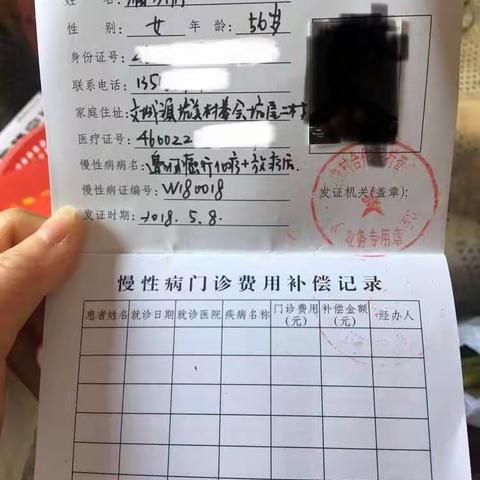 姓 名:
性 别: 女 年 龄: 56岁
身份证号:
联系电话: 135
家庭住址:
医疗证号: 460022
慢性病病名: 鼻咽癌行化疗+放疗后
慢性病证编号: W180018 发证机关(盖章):
发证时期: 2018.5.8.
业务专用章
慢性病门诊费用补偿记录
患者姓名 就诊日期 就诊医院 疾病名称 门诊费用(元) 补偿金额(元) 经办人